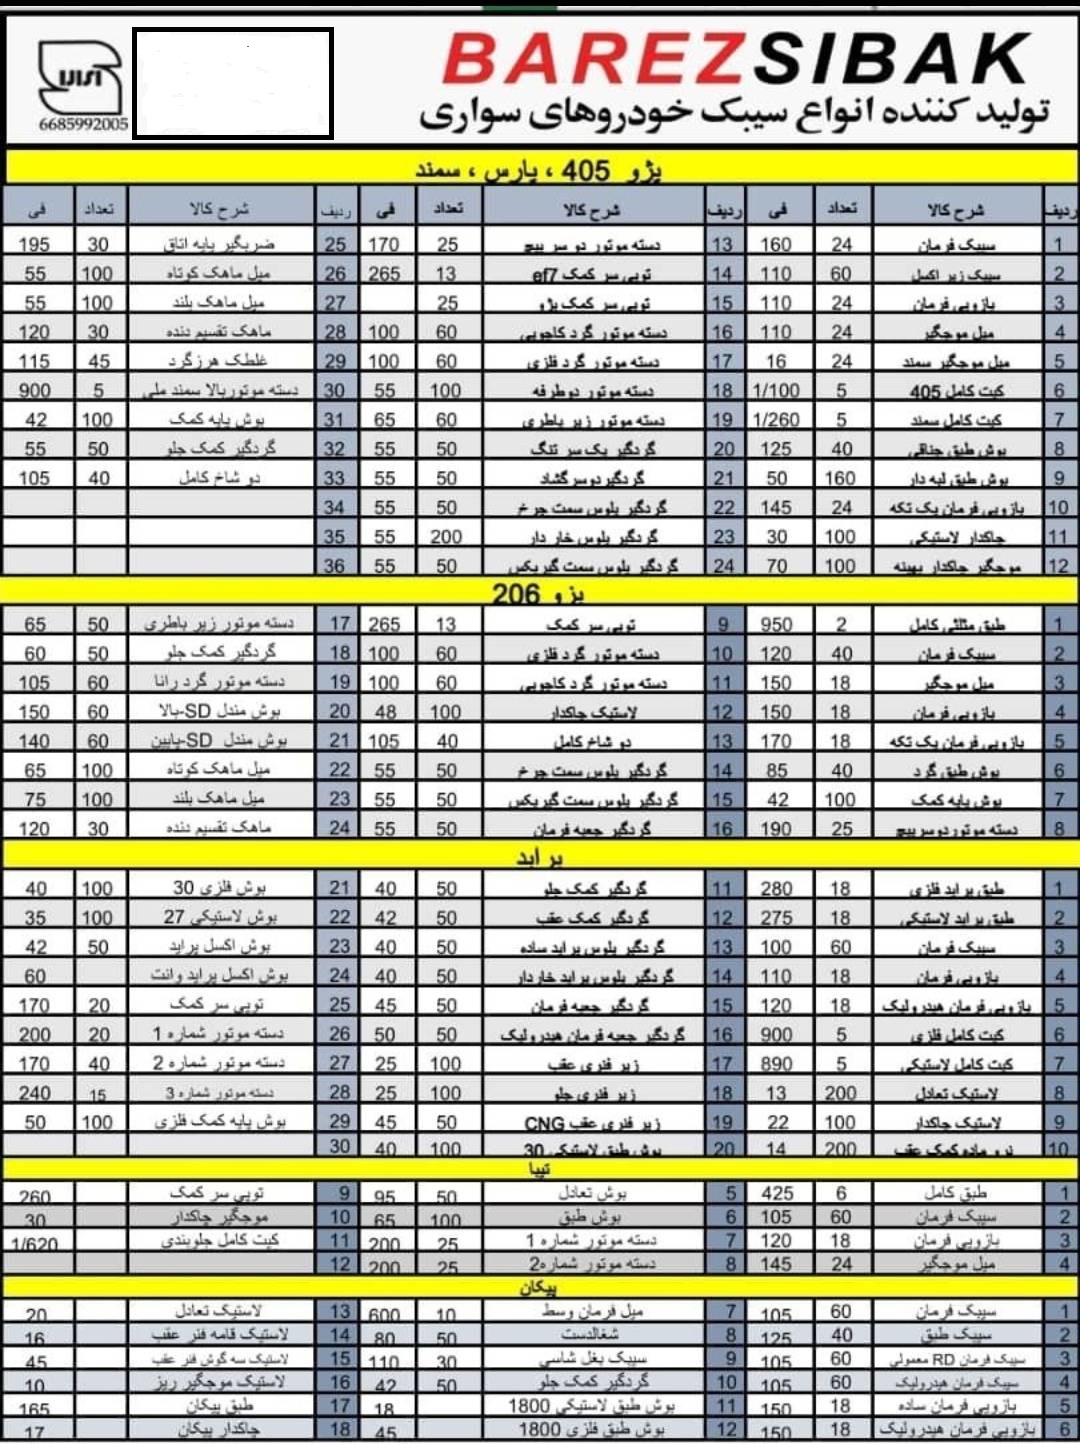 BAREZSIBAK
تولید کننده انواع سیبک خودروهای سواری
6685992005
پژو 405 ، پارس ، سمند
ردیف شرح کالا تعداد فی ردیف شرح کالا تعداد فی ردیف شرح کالا تعداد فی
1 سیبک فرمان 24 160 13 دسته موتور دو سر پیچ 25 170 25 ضربگیر پایه اتاق 30 195
2 سیبک زیر اکسل 60 110 14 توپی سر کمک ef7 13 265 26 میل ماهک کوتاه 100 55
3 بازویی فرمان 24 110 15 توپی سر کمک پژو 25 27 میل ماهک بلند 100 55
4 میل موجگیر 24 110 16 دسته موتور گرد کاچویی 60 100 28 ماهک تقسیم دنده 30 120
5 میل موجگیر سمند 24 16 17 دسته موتور گرد فلزی 60 100 29 غلطک هرزگرد 45 115
6 کیت کامل 405 5 1/100 18 دسته موتور دوطرفه 100 55 30 دسته موتوربالا سمند ملی 5 900
7 کیت کامل سمند 5 1/260 19 دسته موتور زیر باطری 60 65 31 بوش پایه کمک 100 42
8 بوش طبق جناقی 40 125 20 گردگیر یک سر تنگ 50 55 32 گردگیر کمک جلو 50 55
9 بوش طبق لبه دار 160 50 21 گردگیر دوسر گشاد 50 55 33 دو شاخ کامل 40 105
10 بازویی فرمان یک تکه 24 145 22 گردگیر پلوس سمت چرخ 50 55 34
11 چاکدار لاستیکی 100 30 23 گردگیر پلوس خار دار 200 55 35
12 موجگیر چاکدار بهینه 100 70 24 گردگیر پلوس سمت گیربکس 50 55 36
پژو 206
1 طبق مثلثی کامل 2 950 9 توپی سر کمک 13 265 17 دسته موتور زیر باطری 50 65
2 سیبک فرمان 40 120 10 دسته موتور گرد فلزی 60 100 18 گردگیر کمک جلو 50 60
3 میل موجگیر 18 150 11 دسته موتور گرد کاچویی 60 100 19 دسته موتور گرد رانا 60 105
4 بازویی فرمان 18 150 12 لاستیک چاکدار 100 48 20 بوش مندل SD-بالا 60 150
5 بازویی فرمان یک تکه 18 170 13 دو شاخ کامل 40 105 21 بوش مندل SD-پایین 60 140
6 بوش طبق گرد 40 85 14 گردگیر پلوس سمت چرخ 50 55 22 میل ماهک کوتاه 100 65
7 بوش پایه کمک 100 42 15 گردگیر پلوس سمت گیربکس 50 55 23 میل ماهک بلند 100 75
8 دسته موتور دوسرپیچ 25 190 16 گردگیر جعبه فرمان 50 55 24 ماهک تقسیم دنده 30 120
پراید
1 طبق پراید فلزی 18 280 11 گردگیر کمک جلو 50 40 21 بوش فلزی 30 100 40
2 طبق پراید لاستیکی 18 275 12 گردگیر کمک عقب 50 42 22 بوش لاستیکی 27 100 35
3 سیبک فرمان 60 100 13 گردگیر پلوس پراید ساده 50 40 23 بوش اکسل پراید 50 42
4 بازویی فرمان 18 110 14 گردگیر پلوس پراید خاردار 50 40 24 بوش اکسل پراید وانت 60
5 بازویی فرمان هیدرولیک 18 120 15 گردگیر جعبه فرمان 50 45 25 توپی سر کمک 20 170
6 کیت کامل فلزی 5 900 16 گردگیر جعبه فرمان هیدرولیک 50 50 26 دسته موتور شماره 1 20 200
7 کیت کامل لاستیکی 5 890 17 زیر فنری عقب 100 25 27 دسته موتور شماره 2 40 170
8 لاستیک تعادل 200 13 18 زیر فنری جلو 100 25 28 دسته موتور شماره 3 15 240
9 لاستیک چاکدار 100 22 19 زیر فنری عقب CNG 50 45 29 بوش پایه کمک فلزی 100 50
10 نرو ماده کمک عقب 200 14 20 بوش طبق لاستیکی 30 100 40 30
تیبا
1 طبق کامل 6 425 5 بوش تعادل 50 95 9 توپی سر کمک 260
2 سیبک فرمان 60 105 6 بوش طبق 100 65 10 موجگیر چاکدار 30
3 بازویی فرمان 18 120 7 دسته موتور شماره 1 25 200 11 کیت کامل جلوبندی 1/620
4 میل موجگیر 24 145 8 دسته موتور شماره2 25 200 12
پیکان
1 سیبک فرمان 60 105 7 میل فرمان وسط 10 600 13 لاستیک تعادل 20
2 سیبک طبق 40 125 8 شغالدست 50 80 14 لاستیک قامه فنر عقب 16
3 سیبک فرمان RD معمولی 60 105 9 سیبک بغل شاسی 30 110 15 لاستیک سه گوش فنر عقب 45
4 سیبک فرمان هیدرولیک 60 105 10 گردگیر کمک جلو 50 42 16 لاستیک موجگیر ریز 10
5 بازویی فرمان ساده 18 150 11 بوش طبق لاستیکی 1800 18 17 طبق پیکان 165
6 بازویی فرمان هیدرولیک 18 150 12 بوش طبق فلزی 1800 45 18 چاکدار پیکان 17